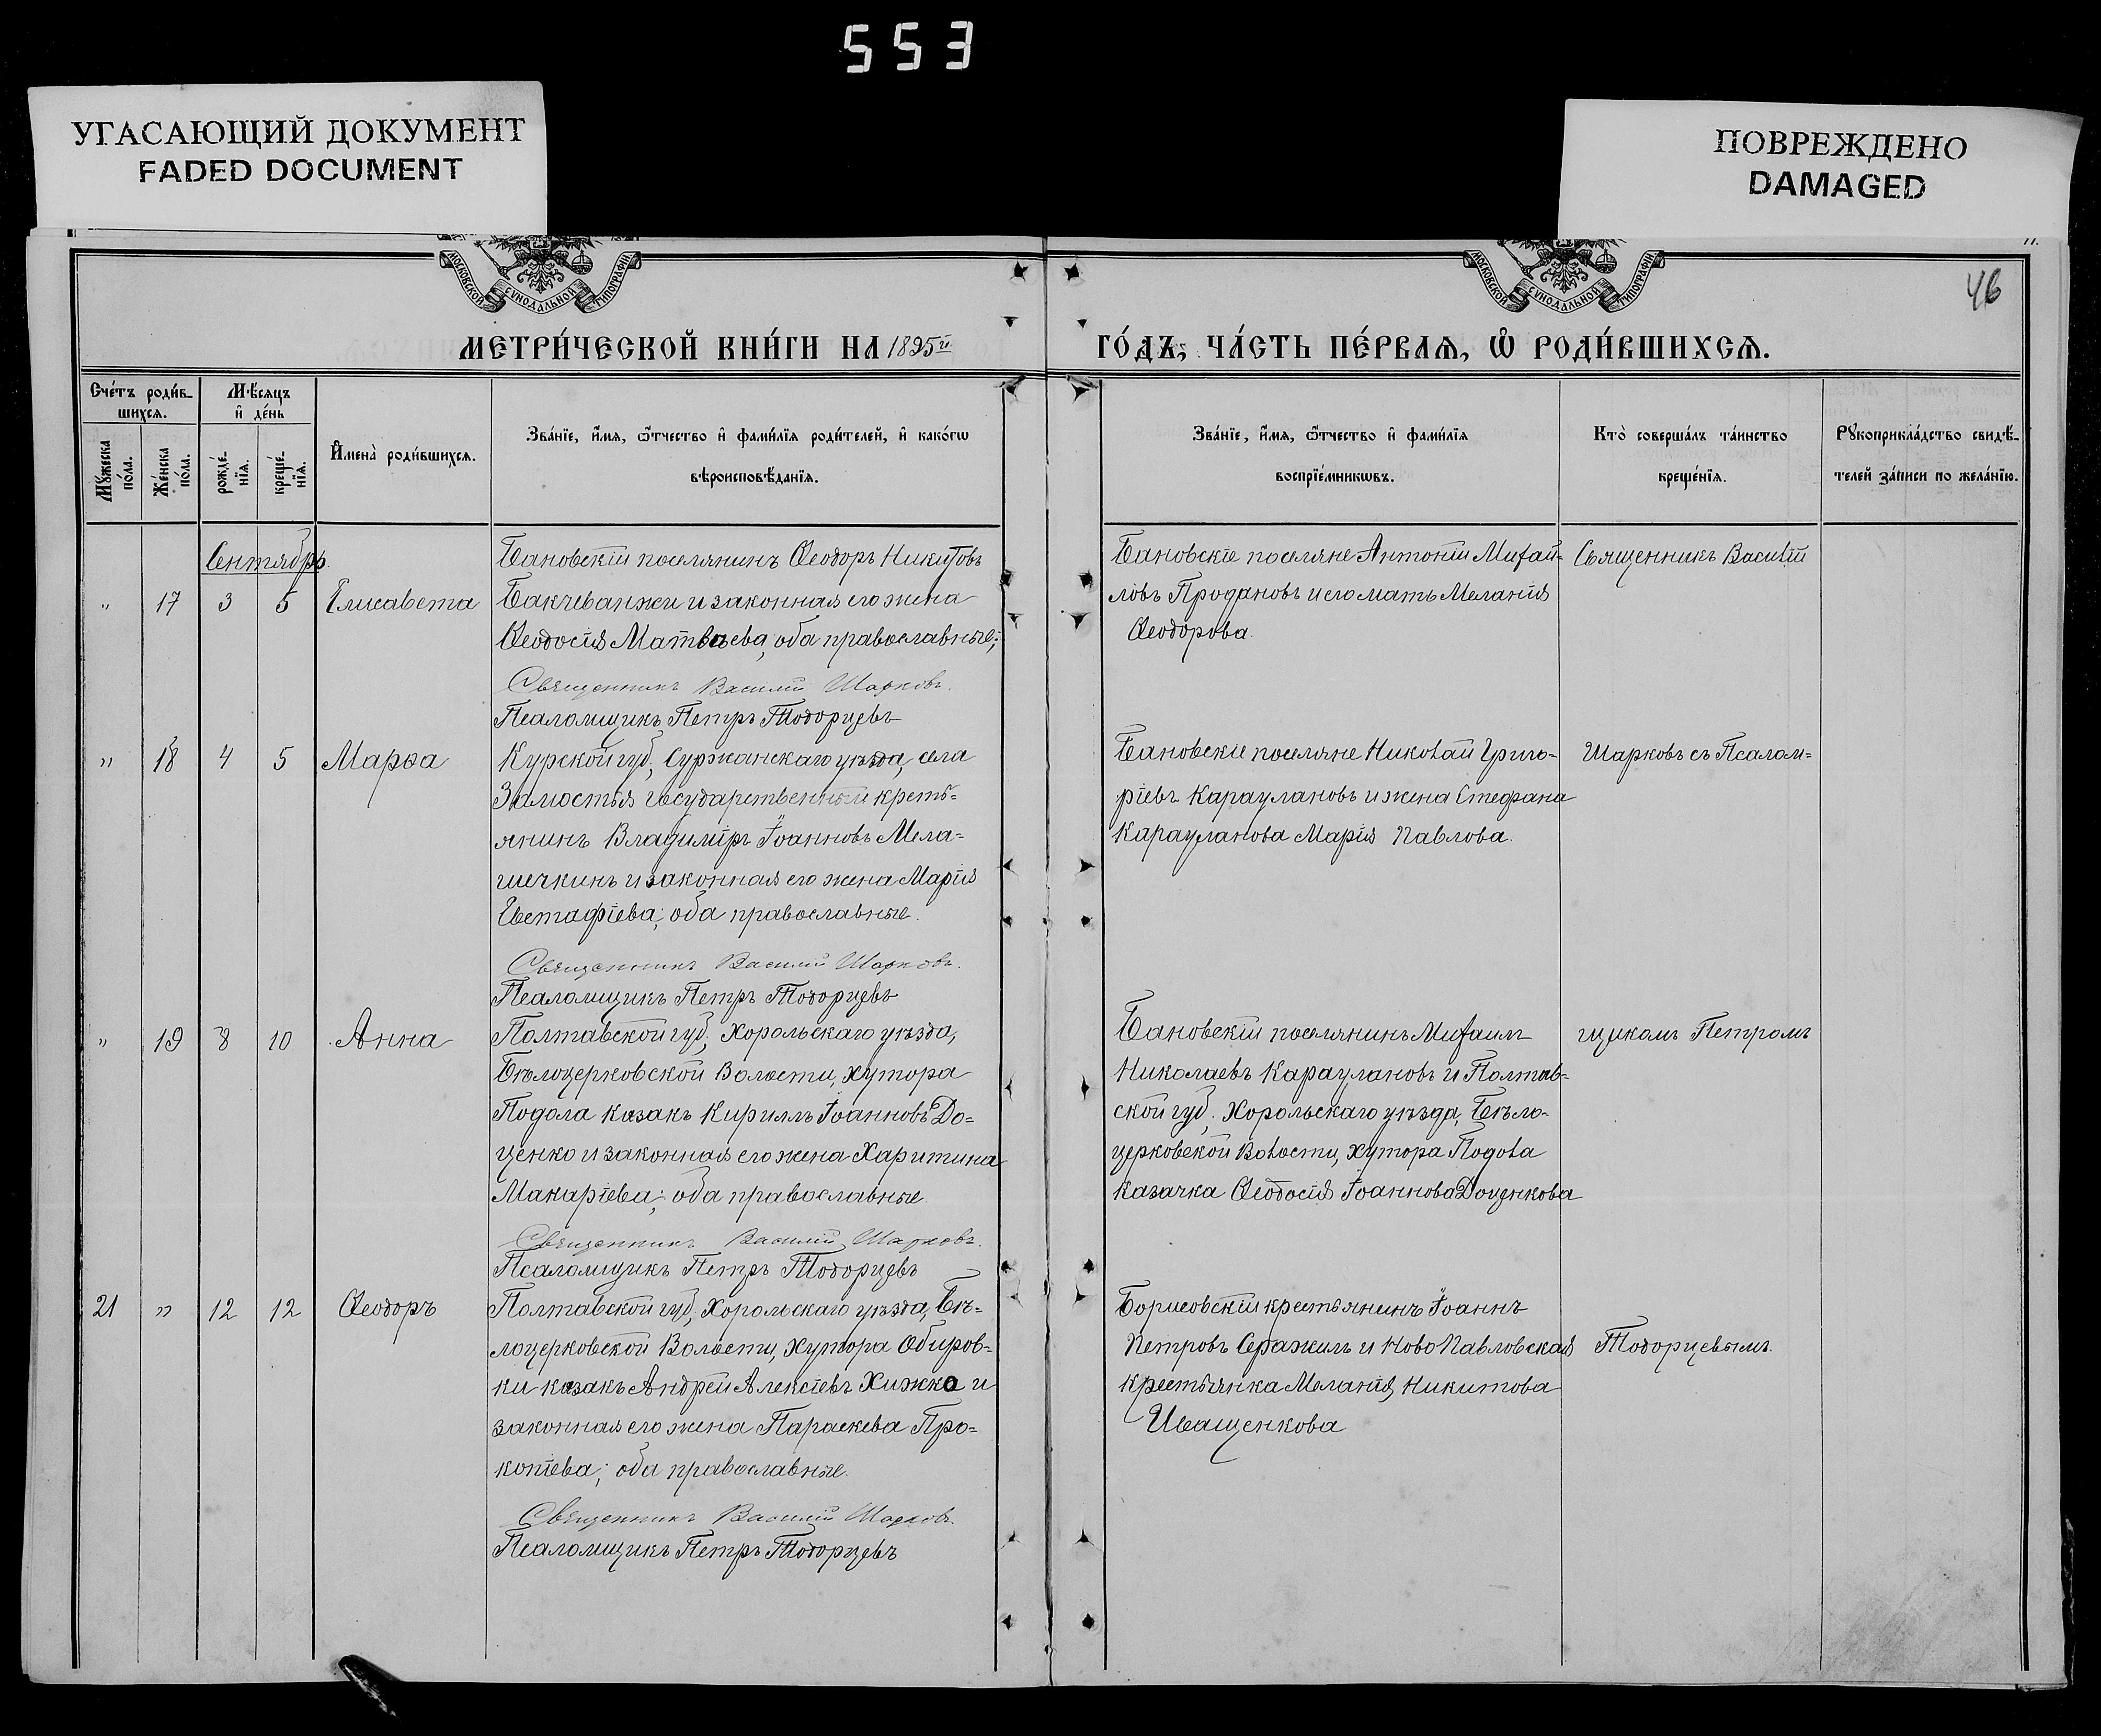 553
УГАСАЮЩИЙ ДОКУМЕНТ
FADED DOCUMENT
ПОВРЕЖДЕНО
DAMAGED
МОСКОВСКОЙ СѴНОДАЛЬНОЙ ТИПОГРАФІИ
МОСКОВСКОЙ СѴНОДАЛЬНОЙ ТИПОГРАФІИ
46
МЕТРИ́ЧЕСКОЙ КНИ́ГИ НА 1895й
ГО́ДЪ, ЧА́СТЬ ПЕ́РВАѦ, Ѽ РОДИ́ВШИХСѦ.
Сче́тъ роди́в-
шихсѧ.
Мꙋ́жеска по́ла.
Же́нска по́ла.
Мѣ́сѧцъ
и҆ де́нь
рожде́-
нїѧ.
креще́-
нїѧ.
И҆мена̀ роди́вшихсѧ.
Зва́нїе, и҆́мѧ, ѻ҆́тчество и҆ фами́лїѧ роди́телей, и҆ како́гѡ
вѣроисповѣ́данїѧ.
Зва́нїе, и҆́мѧ, ѻ҆́тчество и҆ фами́лїѧ
воспрїе́мникѡвъ.
Кто̀ соверша́лъ та́инство
креще́нїѧ.
Рꙋкоприкла́дство свидѣ́-
телей за́писи по жела́нїю.
Сентябрь
Бановскій поселянинъ Ѳеодоръ Никитовъ
" 17 3 5 Елисавета Бакчеванжи и законная его жена
Ѳеодосія Матвѣева; оба православные;
Священникъ Василій Шарковъ.
Псаломщикъ Петръ Тодорцевъ
Бановскіе поселяне Антоній Михай-
ловъ Продановъ и его мать Меланія
Ѳеодорова.
Священникъ Василій
" 18 4 5 Марѳа Курской губ., Суржанскаго уѣзда, села
Замостья государственный кресть-
янинъ Владиміръ Іоанновъ Мела-
шечкинъ и законная его жена Марія
Евстафіева; оба православные.
Священникъ Василій Шарковъ.
Псаломщикъ Петръ Тодорцевъ
Бановскіе поселяне Николай Григо-
ріевъ Караулановъ и жена Стефана
Карауланова Марія Павлова.
Шарковъ съ Псалом-
" 19 8 10 Анна Полтавской губ., Хорольскаго уѣзда,
Бѣлоцерковской Волости, хутора
Подола казакъ Кириллъ Іоанновъ До-
ценко и законная его жена Харитина
Макаріева; оба православные
Священникъ Василій Шарковъ.
Псаломщикъ Петръ Тодорцевъ
Бановскій поселянинъ Михаилъ
Николаевъ Караулановъ и Полтав-
ской губ. Хорольскаго уѣзда, Бѣло-
церковской Волости, хутора Подола
казачка Ѳеодосія Іоаннова Доценкова
щикомъ Петромъ
21 " 12 12 Ѳеодоръ Полтавской губ., Хорольскаго уѣзда, Бѣ-
лоцерковской Волости, хутора Обиров-
ки казакъ Андрей Алексіевъ Хижко и
законная его жена Параскева Про-
копіева; оба православные.
Священникъ Василій Шарковъ.
Псаломщикъ Петръ Тодорцевъ
Борисовскій крестьянинъ Іоаннъ
Петровъ Серажимъ и Ново Павловская
крестьянка Меланія Никитова
Иващенкова
Тодорцевымъ.